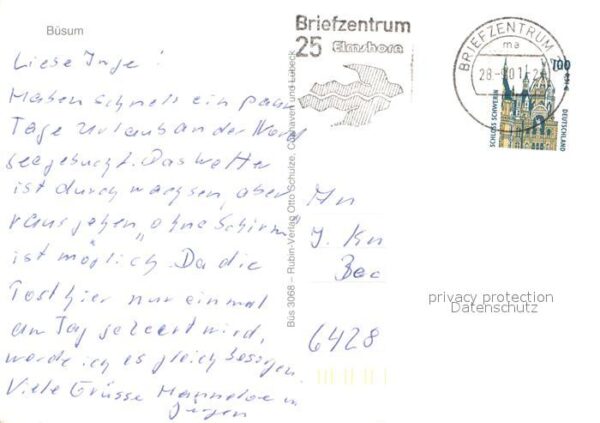 Büsum
Liebe Inge!
Haben schnell ein paar
Tage Urlaub an der Nord
see gebucht. Das Wetter
ist durchwachsen, aber
rausgehen "ohne Schirm"
ist möglich. Da die
Post hier nur einmal
am Tag geleert wird,
werde ich es gleich besorgen.
Viele Grüsse Hannelore u
Jürgen
Büs 3068 – Rubin-Verlag Otto Schulze, Cuxhaven und Lübeck
Briefzentrum
25 Elmshorn
BRIEFZENTRUM
ma
100
SCHLOSS SCHWERIN
DEUTSCHLAND
J. Kn
6428
privacy protection
Datenschutz